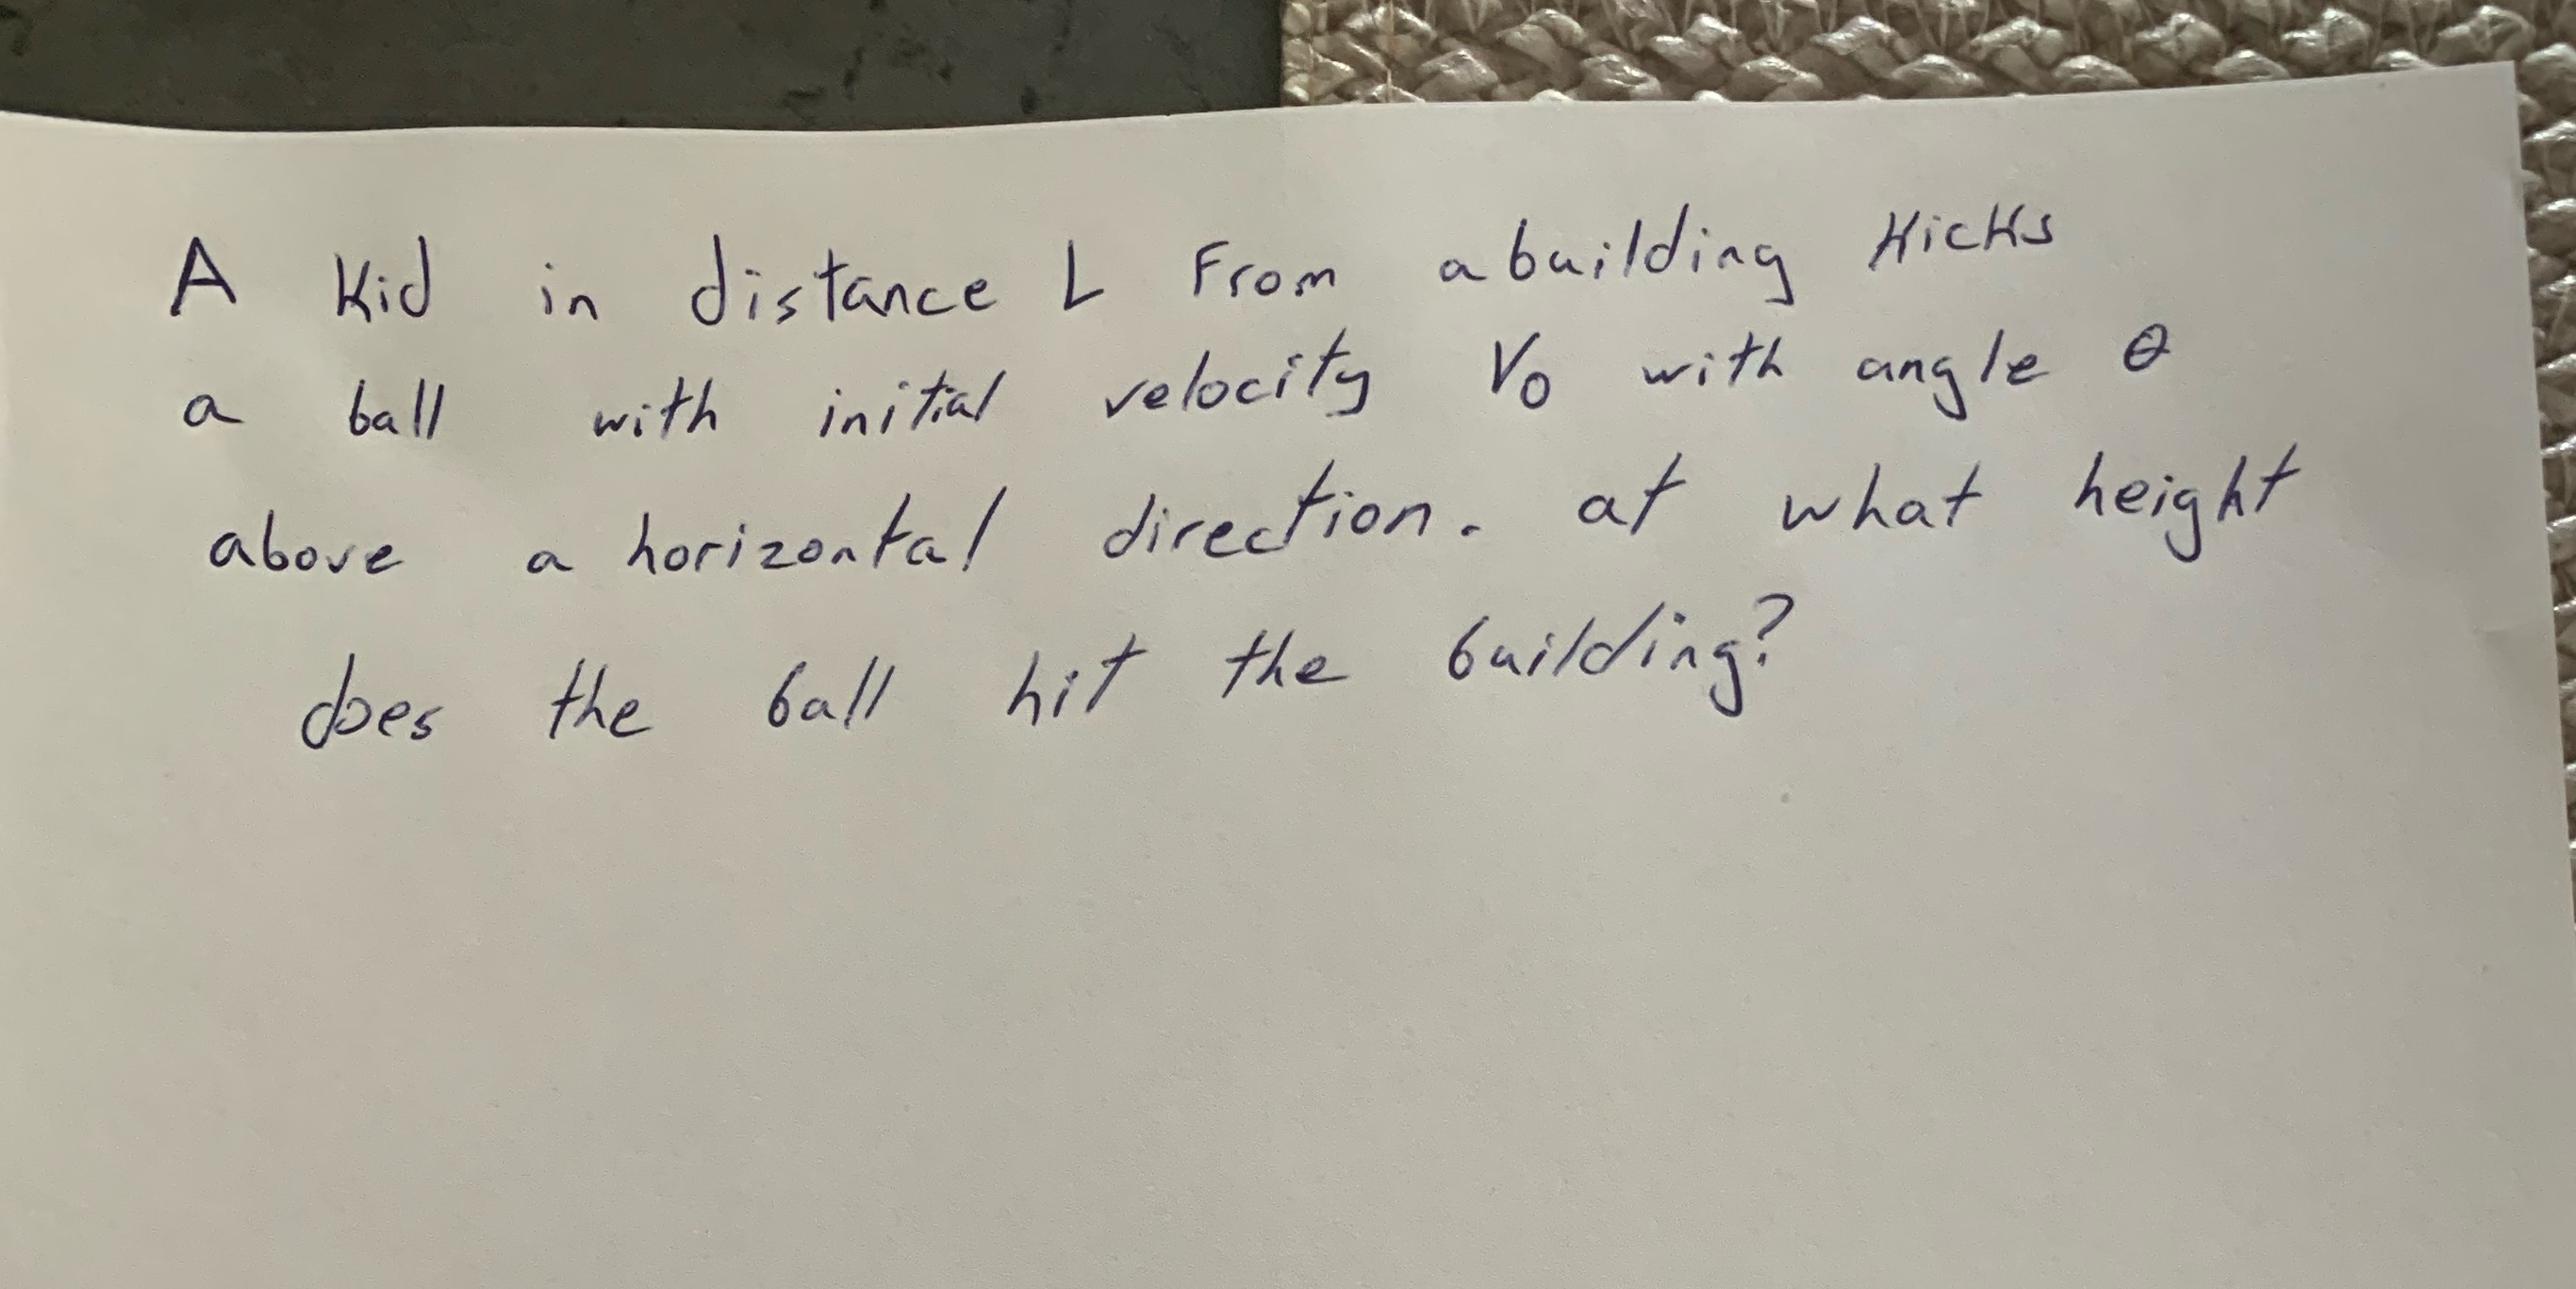 A kid in distance L From a building kicks
a ball with initial velocity V₀ with angle θ
above a horizontal direction. at what height
does the ball hit the building?